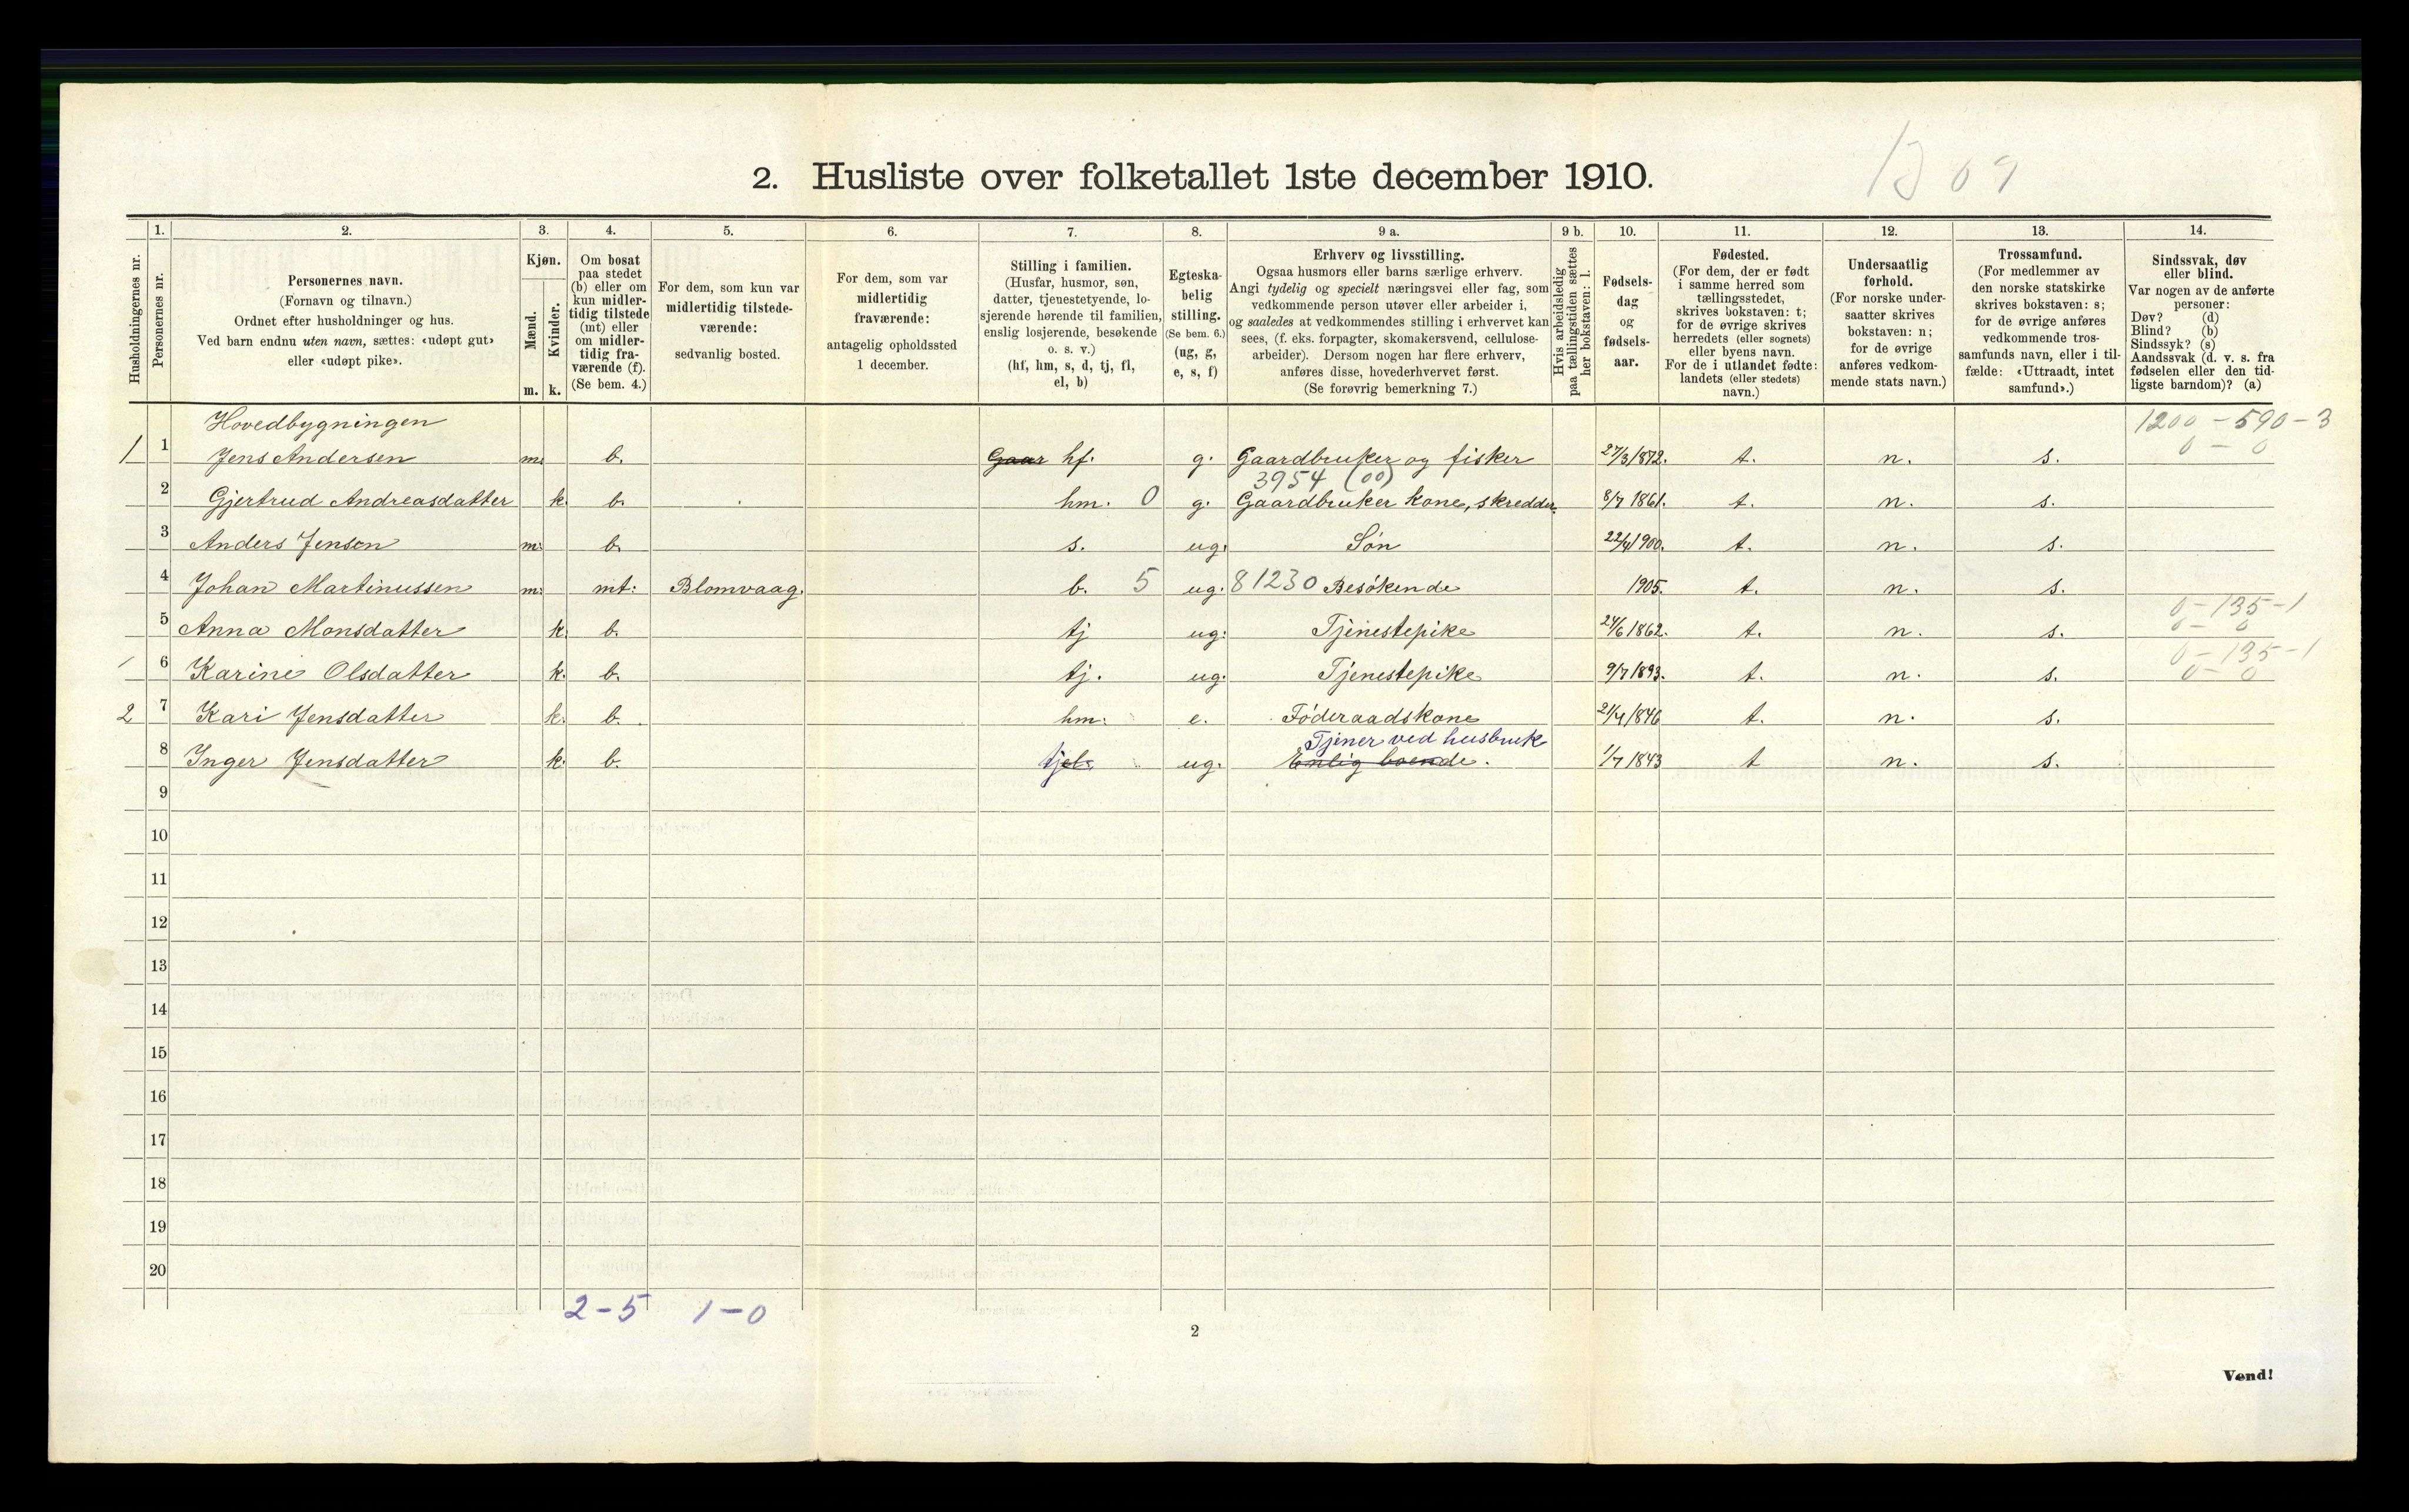 2. Husliste over folketallet 1ste december 1910.
Husholdningernes nr.
1. Personernes nr.
2. Personernes navn. (Fornavn og tilnavn.) Ordnet efter husholdninger og hus. Ved barn endnu uten navn, sættes: «udøpt gut» eller «udøpt pike».
3. Kjøn. Mænd. m. Kvinder. k.
4. Om bosat paa stedet (b) eller om kun midlertidig tilstede (mt) eller om midlertidig fraværende (f). (Se bem. 4.)
5. For dem, som kun var midlertidig tilstedeværende: sedvanlig bosted.
6. For dem, som var midlertidig fraværende: antagelig opholdssted 1 december.
7. Stilling i familien. (Husfar, husmor, søn, datter, tjenestetyende, losjerende hørende til familien, enslig losjerende, besøkende o. s. v.) (hf, hm, s, d, tj, fl, el, b)
8. Egteskabelig stilling. (Se bem. 6.) (ug, g, e, s, f)
9 a. Erhverv og livsstilling. Ogsaa husmors eller barns særlige erhverv. Angi tydelig og specielt næringsvei eller fag, som vedkommende person utøver eller arbeider i, og saaledes at vedkommendes stilling i erhvervet kan sees, (f. eks. forpagter, skomakersvend, cellulosearbeider). Dersom nogen har flere erhverv, anføres disse, hovederhvervet først. (Se forøvrig bemerkning 7.)
9 b. Hvis arbeidsledig paa tællingstiden sættes her bokstaven: l.
10. Fødselsdag og fødselsaar.
11. Fødested. (For dem, der er født i samme herred som tællingsstedet, skrives bokstaven: t; for de øvrige skrives herredets (eller sognets) eller byens navn. For de i utlandet fødte: landets (eller stedets) navn.)
12. Undersaatlig forhold. (For norske undersaatter skrives bokstaven: n; for de øvrige anføres vedkommende stats navn.)
13. Trossamfund. (For medlemmer av den norske statskirke skrives bokstaven: s; for de øvrige anføres vedkommende trossamfunds navn, eller i tilfælde: «Uttraadt, intet samfund».)
14. Sindssvak, døv eller blind. Var nogen av de anførte personer: Døv? (d) Blind? (b) Sindssyk? (s) Aandssvak (d. v. s. fra fødselen eller den tidligste barndom)? (a)
Hovedbygningen 1200-590-3
1 1 Jens Andersen m. b. Gaar hf. g. Gaardbruker og fisker 27/3/1872. t. n. s. 0-0
3954 (00)
2 Gjertrud Andreasdatter k. b. hm. 0 g. Gaardbruker kone, skredder. 8/7 1861. t. n. s.
3 Anders Jenson m. b. s. ug. Søn 22/4/1900. t. n. s.
4 Johan Martinussen m. mt: Blomvaag. b. 5 ug. 81230 Besøkende 1905. t. n. s.
0-135-1
5 Anna Monsdatter k. b. tj ug: Tjenestepike 24/6 1862. t. n. s. 0-0
0-135-1
6 Karine Olsdatter k. b. tj. ug. Tjenestepike 9/7 1893. t. n. s. 0-0
2 7 Kari Jensdatter k. b. hm: e. Føderaadskone 21/4/1846 t. n. s.
Tjener ved husbruk
8 Inger Jensdatter k. b. tj ug. Enlig boende. 1/7 1843 t n. s.
9
10
11
12
13
14
15
16
17
18
19
20
2-5 1-0
2
Vend!